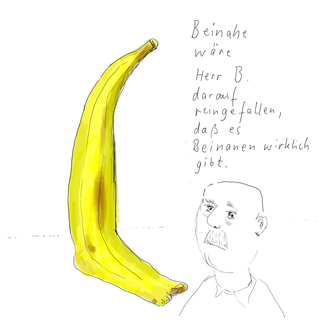 Beinahe
wäre
Herr B.
darauf
reingefallen,
daß es
Beinanen wirklich
gibt.